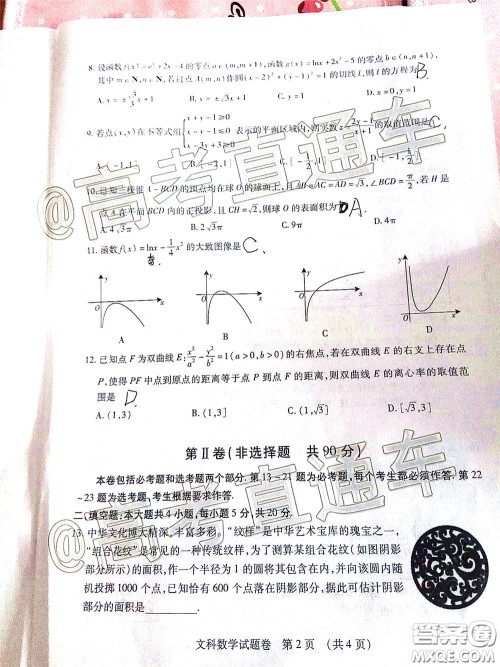 8. 设函数f(x)=eˣ+2x-4的零点a∈(m,m+1),函数g(x)=lnx+2x²-5的零点b∈(n,n+1),
其中m∈N,n∈N,若过点A(m,n)作圆(x-2)²+(y-1)²=1的切线l,则l的方程为 B
B. y=±√3x+1 C. y=1 D. x=0,y=1
9. 若点(x,y)在不等式组 表示的平面区域内,则实数 的取值范围是 C
x-y+1≥0
A-BCD的顶点均在球O的球面上,且AB=AC=AD=√3,∠BCD=π/2,若H是
点A在平面BCD内的正投影,且CH=√2,则球O的表面积为 A
A. 4√3π B. 2√3π C. 9π D. 4π
11. 函数f(x)=lnx-1/4x²的大致图像是 C
y y y y
O x O x O x O x
A B C D
12. 已知点F为双曲线E:x²/a²-y²/b²=1(a>0,b>0)的右焦点,若在双曲线E的右支上存在点
P,使得PF中点到原点的距离等于点P到点F的距离,则双曲线E的离心率的取值范
围是 D
A. (1,3) B. (1,3] C. (1,√3] D. [√3,3]
第Ⅱ卷(非选择题 共90分)
本卷包括必考题和选考题两个部分. 第13~21题为必考题,每个考生都必须作答. 第22
~23题为选考题,考生根据要求作答.
二、填空题:本大题共4小题,每小题5分,共20分.
13. 中华文化博大精深,丰富多彩. “纹样”是中华艺术宝库的瑰宝之一,
“组合花纹”是常见的一种传统纹样. 为了测算某组合花纹(如图阴影
部分所示)的面积,作一个半径为1的圆将其包含在内,并向该圆内随机
投掷1000个点,已知恰有600个点落在阴影部分,据此可估计阴影
部分的面积是
文科数学试题卷 第2页 (共4页)
@高考直通车
@高考直通车
答案圈
MXQE.COM